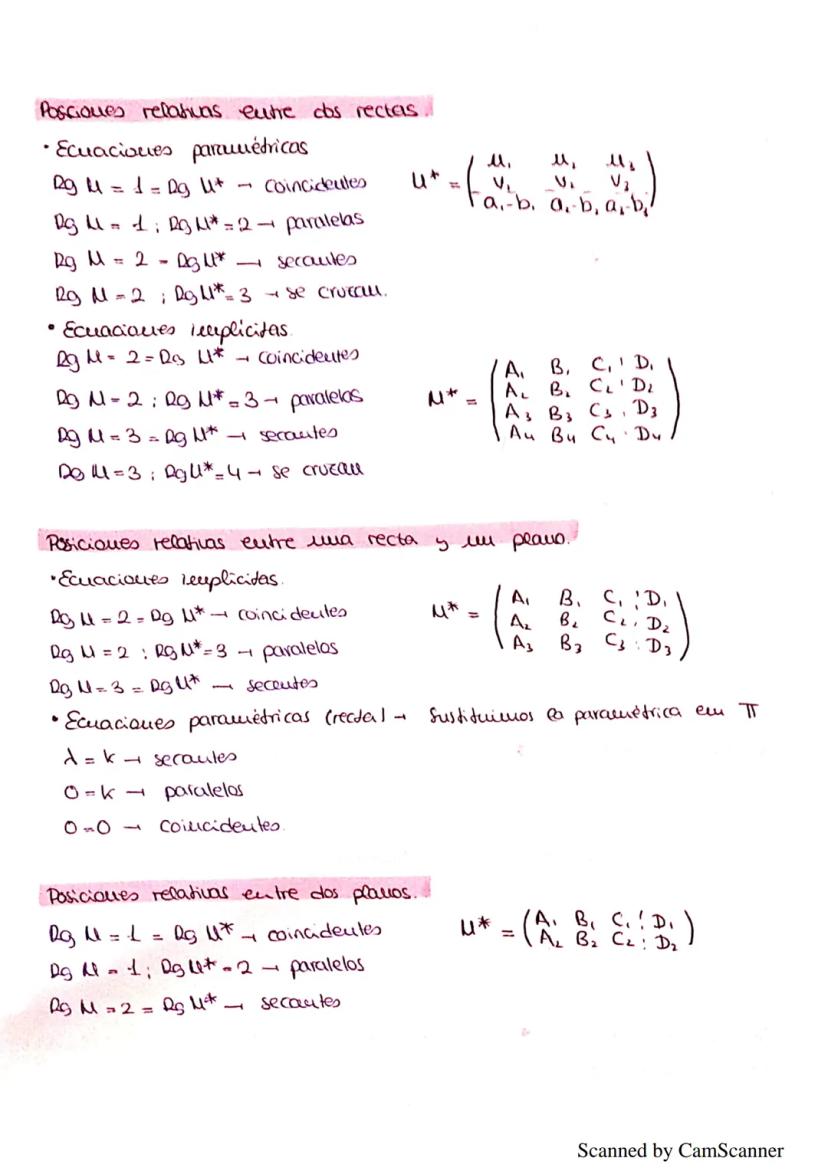 Posciones relativas entre dos rectas.
• Ecuaciones paramétricas
Rg M = 1 = Rg M* → coincidentes
M* = ( u₁ u₂ u₃
v₁ v₂ v₃
a₁-b₁ a₂-b₂ a₃-b₃ )
Rg M = 1 ; Rg M* = 2 → paralelas
Rg M = 2 = Rg M* → secantes
Rg M = 2 ; Rg M* = 3 → se cruzan.
• Ecuaciones implícitas.
Rg M = 2 = Rg M* → coincidentes
Rg M = 2 ; Rg M* = 3 → paralelos
Rg M = 3 = Rg M* → secantes
Rg M = 3 ; Rg M* = 4 → se cruzan
M* = ( A₁ B₁ C₁ ¦ D₁
A₂ B₂ C₂ ¦ D₂
A₃ B₃ C₃ ¦ D₃
A₄ B₄ C₄ ¦ D₄ )
Posiciones relativas entre una recta y un plano.
• Ecuaciones implícitas.
Rg M = 2 = Rg M* → coincidentes
Rg M = 2 ; Rg M* = 3 → paralelos
Rg M = 3 = Rg M* → secantes
M* = ( A₁ B₁ C₁ ¦ D₁
A₂ B₂ C₂ ¦ D₂
A₃ B₃ C₃ ¦ D₃ )
• Ecuaciones paramétricas (recta) → Sustituimos la paramétrica em π
λ = k → secantes
0 = k → paralelos
0 = 0 → coincidentes.
Posiciones relativas entre dos planos.
Rg M = 1 = Rg M* → coincidentes
Rg M = 1 ; Rg M* = 2 → paralelos
Rg M = 2 = Rg M* → secantes
M* = ( A₁ B₁ C₁ ¦ D₁
A₂ B₂ C₂ ¦ D₂ )
Scanned by CamScanner